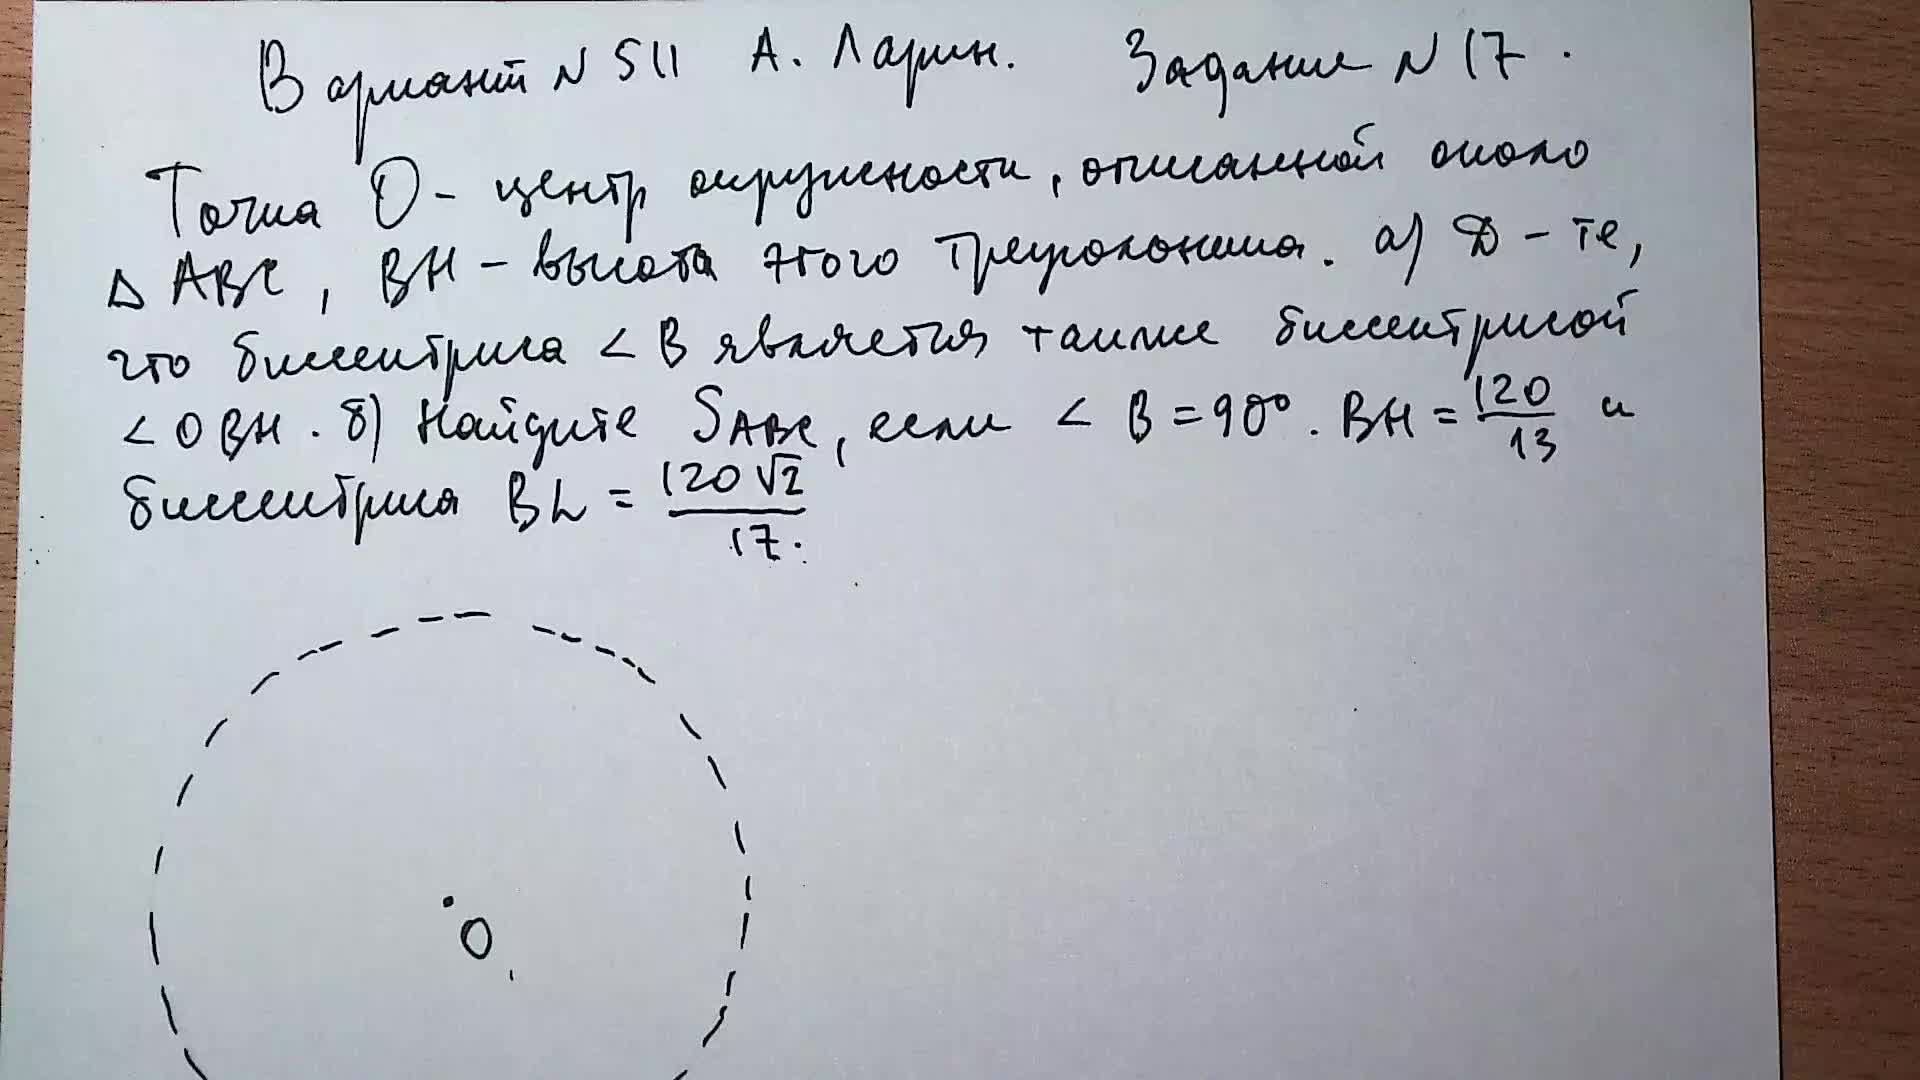 Вариант N 511 А. Ларин. Задание N 17.
Точка О - центр окружности, описанной около
△ АВС, ВН - высота этого треугольника. а) Д - те,
что биссектриса < В является также биссектрисой
< ОВН. б) Найдите S ABC, если < В = 90°. ВН = 120/13 и
биссектриса BL = 120√2/17.
О